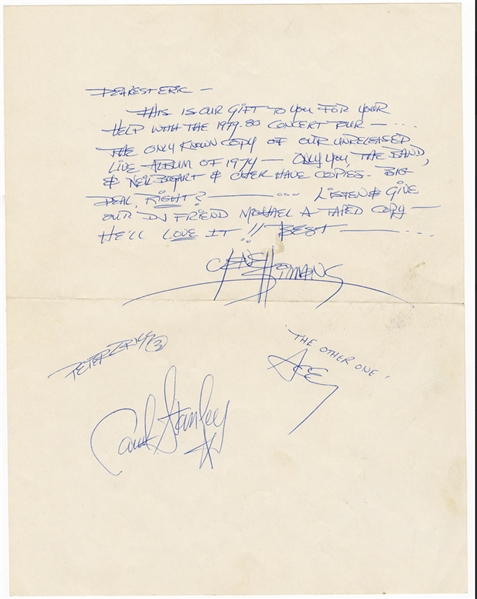 DEAREST ERIC —
THIS IS OUR GIFT TO YOU FOR YOUR
HELP WITH THE 1979-80 CONCERT TOUR — ...
THE ONLY KNOWN COPY OF OUR UNRELEASED
LIVE ALBUM OF 1974 — ONLY YOU, THE BAND,
& NEIL BOGART & OTHER HAVE COPIES. BIG
DEAL, RIGHT? — ... LISTEN & GIVE
OUR DJ FRIEND MICHAEL A TAPED COPY —
HE'LL LOVE IT!! BEST — ...
GENE SIMMONS
"THE OTHER ONE"
PETER
ACE
Paul Stanley